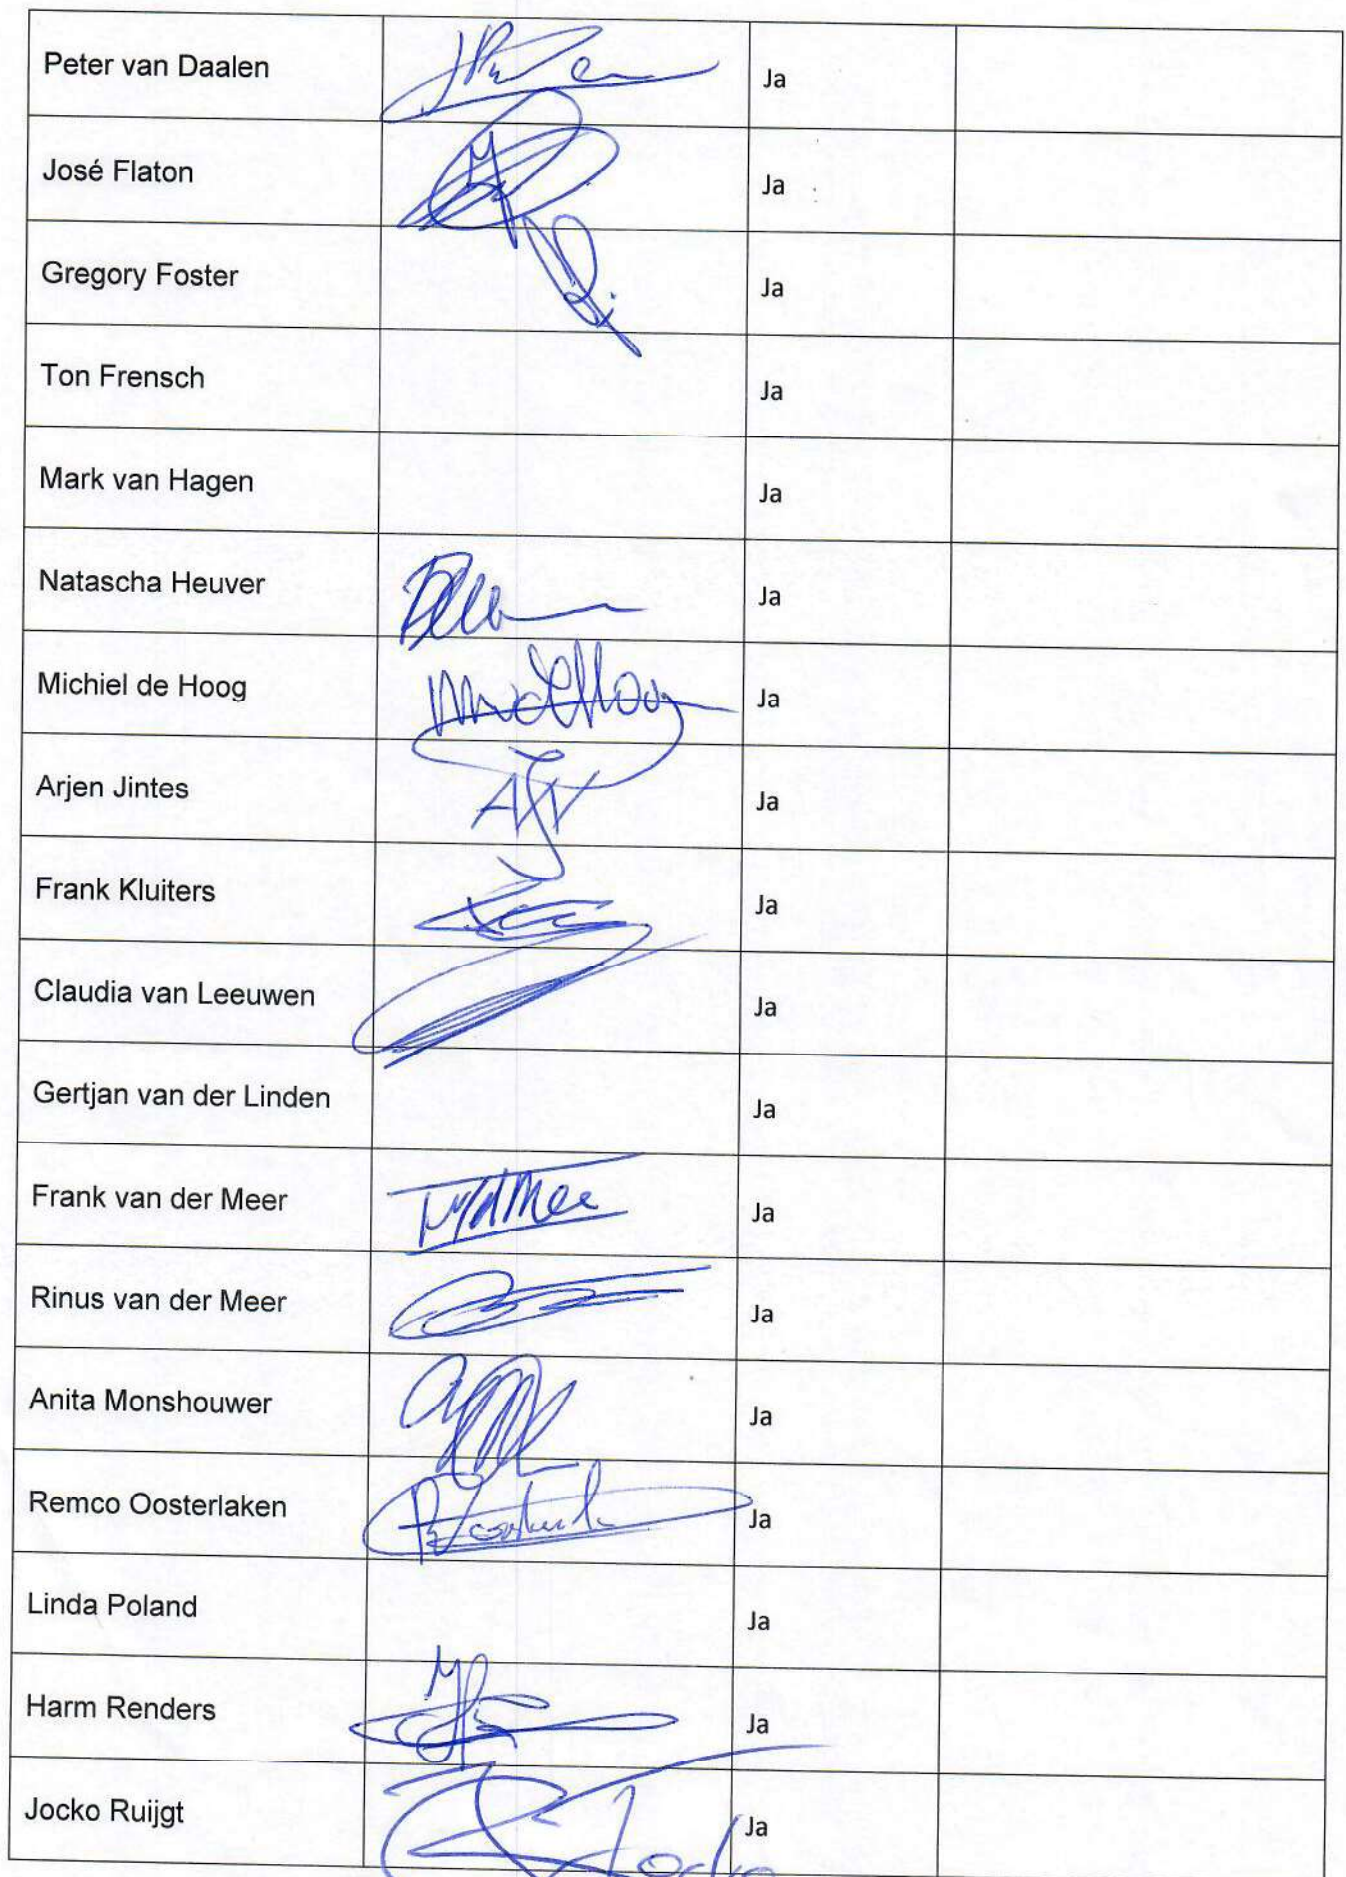 Peter van Daalen Ja
José Flaton Ja
Gregory Foster Ja
Ton Frensch Ja
Mark van Hagen Ja
Natascha Heuver Ja
Michiel de Hoog Ja
Arjen Jintes Ja
Frank Kluiters Ja
Claudia van Leeuwen Ja
Gertjan van der Linden Ja
Frank van der Meer Ja
Rinus van der Meer Ja
Anita Monshouwer Ja
Remco Oosterlaken Ja
Linda Poland Ja
Harm Renders Ja
Jocko Ruijgt Ja